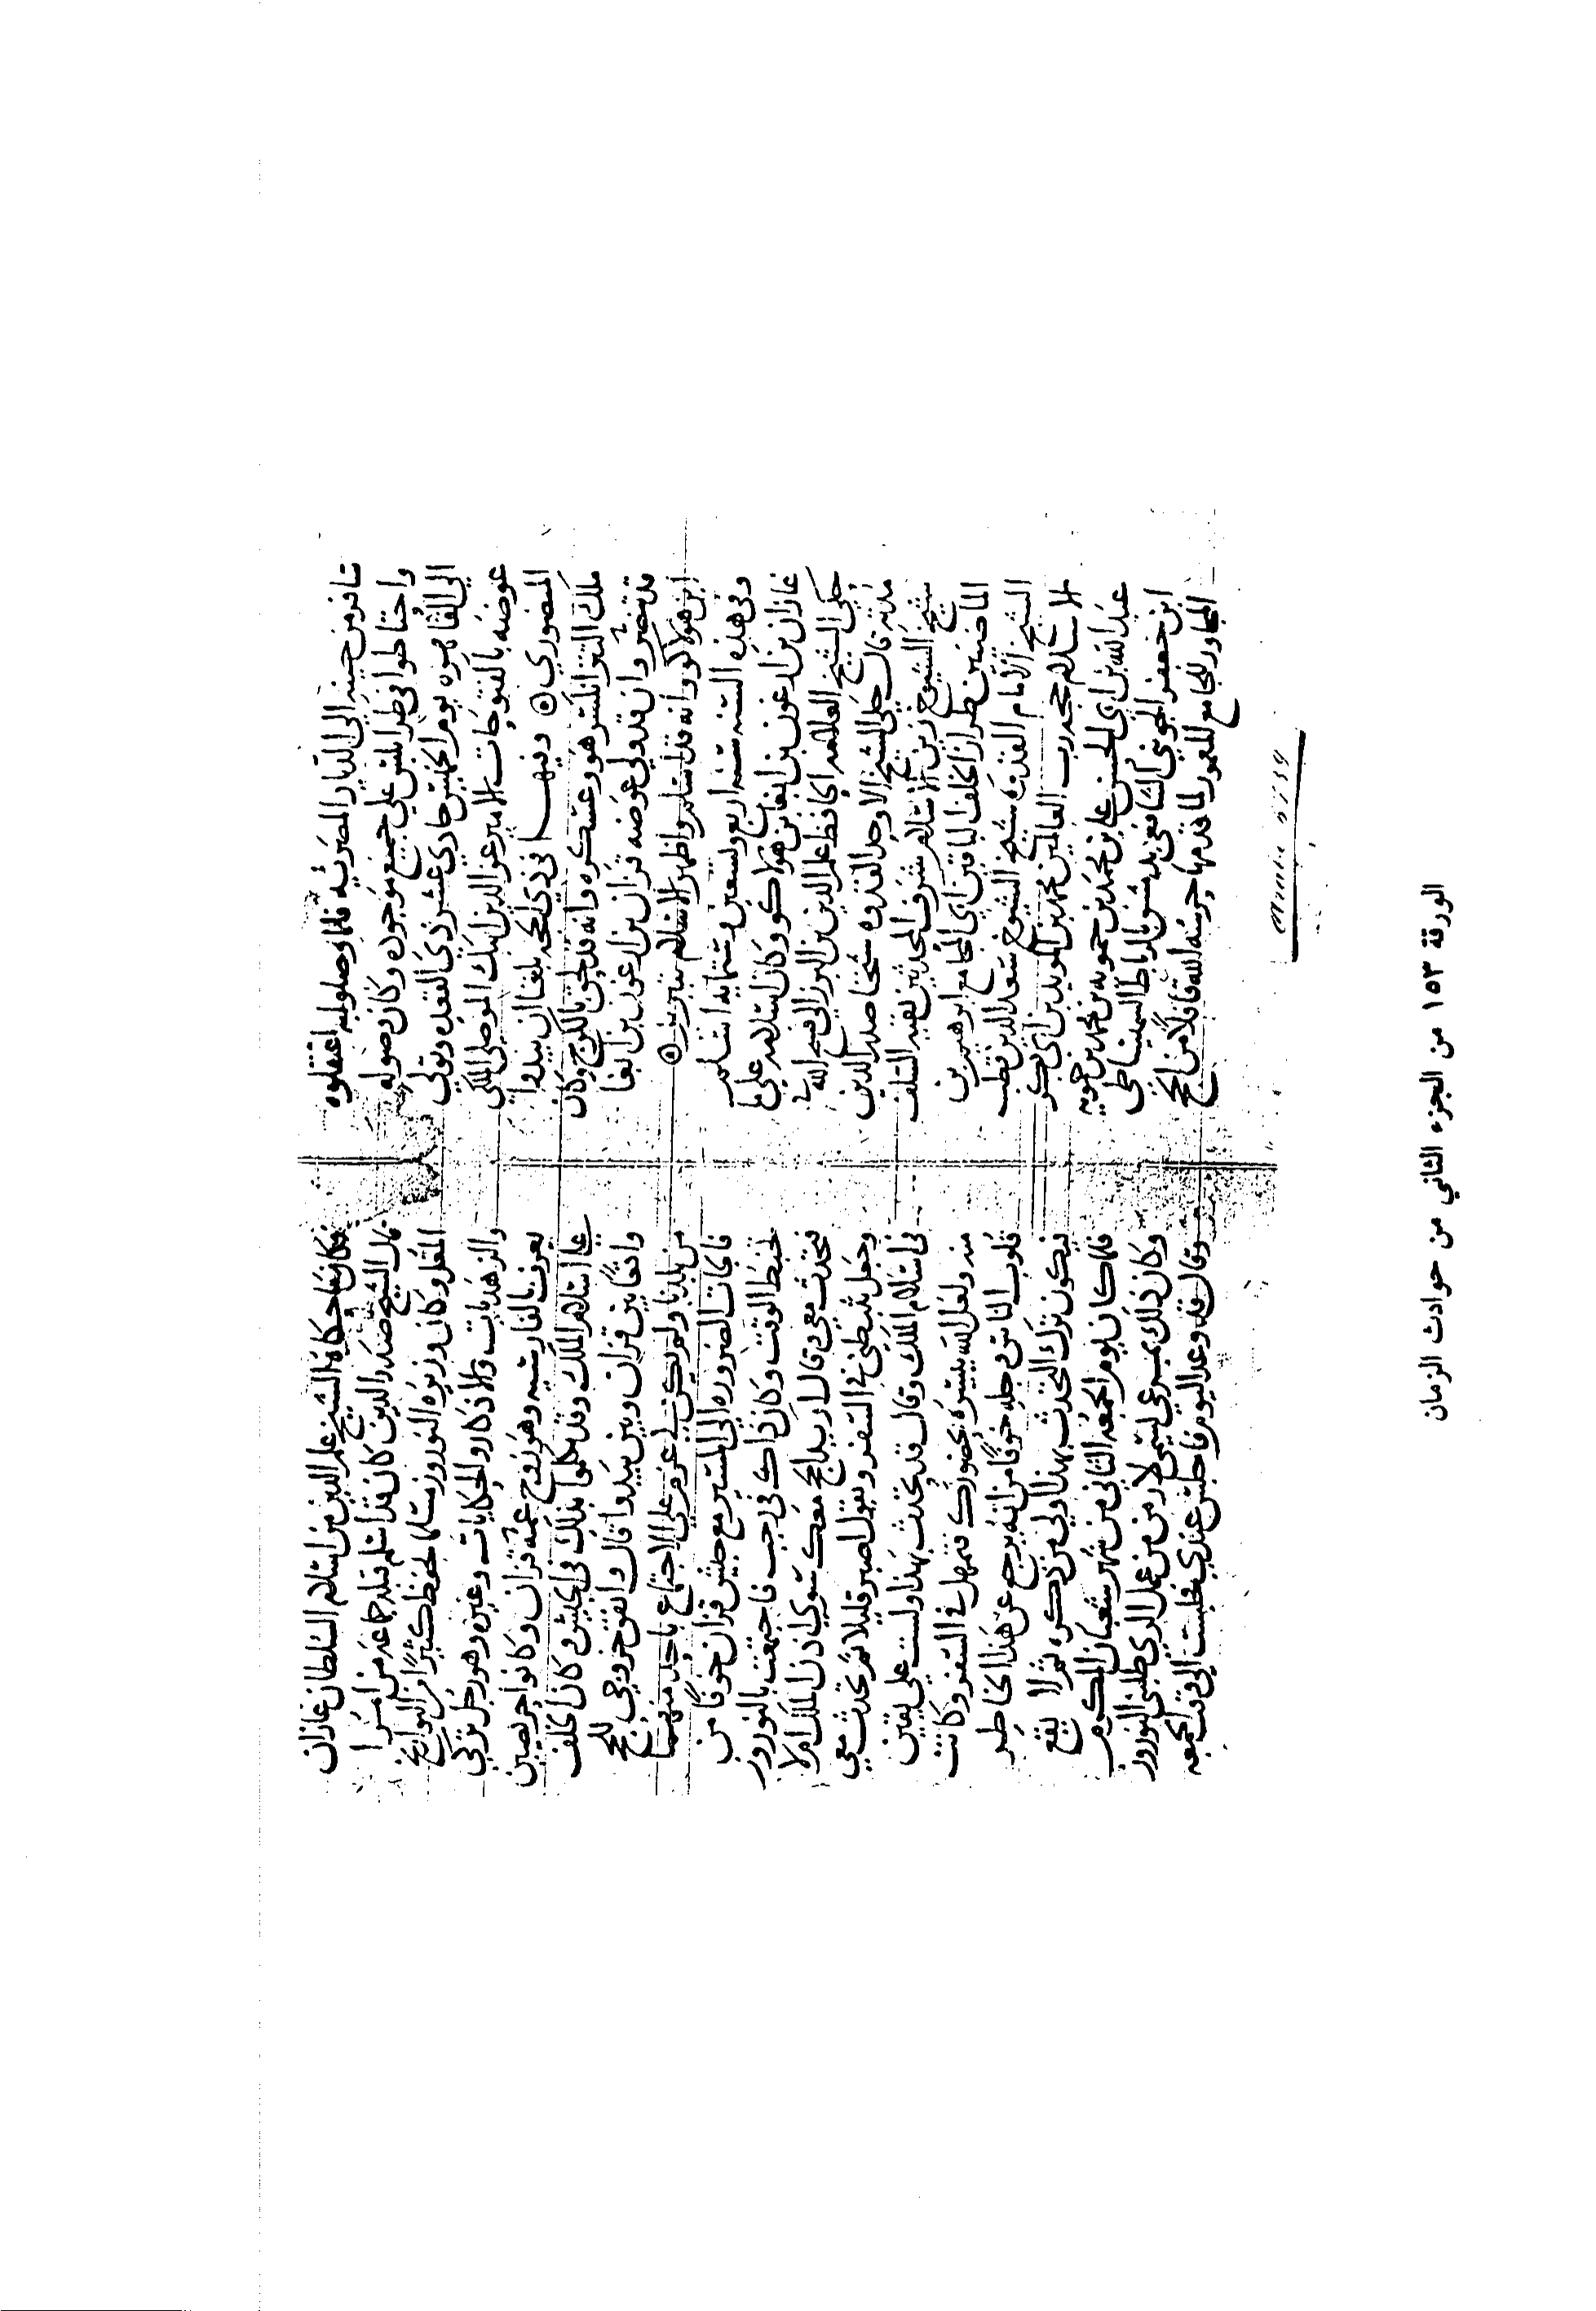 سافر من حينه الى الديار المصريه فلما وصلوا به اعتقلوه
واحتاطوا في طرابلس علي جميع موجوده وكان وصوله
الي القاهره يوم الخميس حادي عشر ذي القعده وتولي
عوضه بالفتوحات الامير عز الدين ايبك الموصلي الملكي
المنصوري ۞ وفيهــا في ذي الحجه بلغنا ان بيدوا
ملك التتر انكسر هو وعسكره وانه قد لحق بالكرج وكان
قد تنصر وان قد ولي عوضه قزان بن ارغون بن ابغا
ابن هولاكو وانه قد اسلم واظهر الاسلام بتبريز ۞
وفي هذه السنه سنه اربع وتسعين وستمايه اسلم
غازان بن ارغون بن ابغا بن هولاكو وكان اسلامه علي ما
حكي الشيخ العلامه الحافظ علم الدين بن البرزالي فسح الله في
مدته قال حكي الشيخ الاوحد القدوه شيخنا صدر الدين
شيخ الشيوخ زين الاسلام شرف المحدثين بقيه السلف
الماضيين طراز الخلف الباقين ابي المجامع ابرهيم بن
الشيخ الامام القدوه شيخ الشيوخ سعد الدين قطب
الاسلام حجه رب العالمين محمد بن المويد بن ابي بكر
عبد الله بن ابي الحسن علي بن محمد بن حمويه بن محمد بن حمويه
ابن جعفر الجويني الشافعي بدمشق بالرباط السميساطي
المجاور للجامع المعمور لما قدمها حرسه الله قافلاً من الحج
فكان مما حكاه الشيخ علم الدين من اسلام السلطان غازان
قال الشيخ صدر الدين كان قد اسلم قبله جماعه من امرا
المغل وكان وزيره النوروز مسلما يحفظ كثيرًا من التواريخ
والزهديات والاذكار والحكايات وغيره وهو رجل تركي
يعرف بالفارسيه وهو زوج عمه قزان وكانوا حريصين
علي اسلام الملك وقد تكلموا بذلك في الجيش وكان الخلف
واقعًا بين قزان وبين بيدوا قال واتفق خروجي للحج
من بلدنا ولم يكن لي عزم علي الاجتماع باحد منهما
فالجات الضروره الي المسير مع جيش قزان خوفًا من
تخبط الوقت وكان ذاك في رجب فاجتمعت بالنوروز
فتحدث معي وقال اريد الحج معك سوي اذن الملك ام لا
وجعل يثبطني في السفر ويقول اصبر قليلا ثم تحدث معي
في اسلام الملك وقال قد تحدث بهذا ولست علي يقين
منه ولعل الله ييسره بحضورك فتمهل في السفر وكانت
قلوب الناس وجله خوفًا من انه يرجع عن هذا الخاطر
فيكون ترك التحدث بهذا اولي من ذكره ثم لا يقع
فلما كان يوم الجمعه الثاني من شهر شعبان المكرم
وكان ذلك بمرعي يسمي لار من عمل الري طلبني النوروز
وقال قد وعد اليوم فاجلس عندي فجلست الي وقت الجمعه
الورقة ١٥٣ من الجزء الثاني من حوادث الزمان